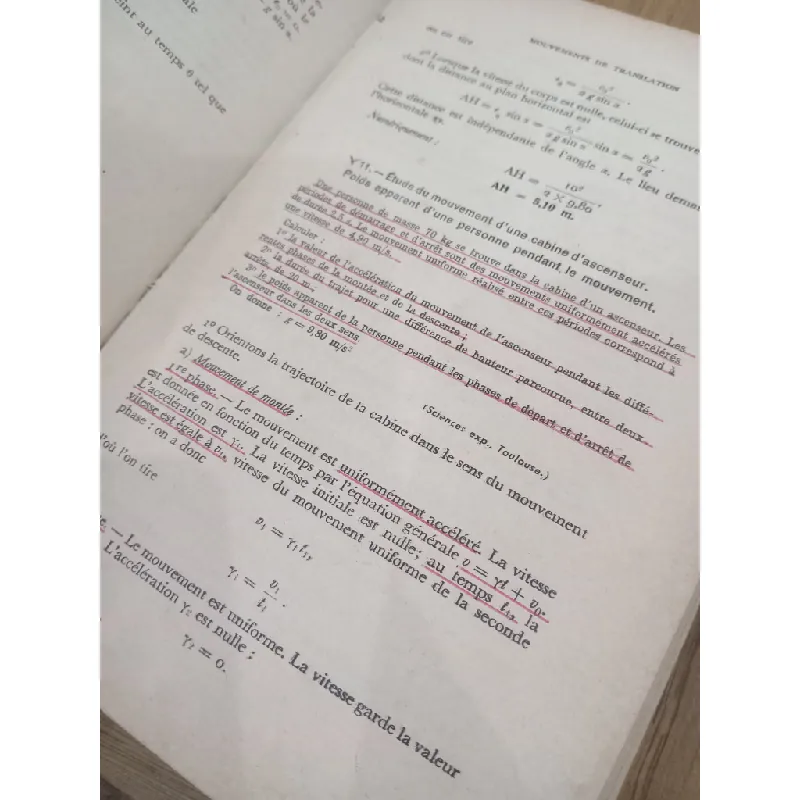 nale
g sin α
eint au temps θ tel que
on en tire
MOUVEMENTS DE TRANSLATION
2º Lorsque la vitesse du corps est nulle, celui-ci se trouve
dont la distance au plan horizontal est
AH = e₁ sin α = v₀² / 2g sin α sin α = v₀² / 2g.
Cette distance est indépendante de l'angle α. Le lieu deman
l'horizontale
Numériquement :
AH = 10² / 2 × 9,80,
AH = 5,10 m.
V 11. — Étude du mouvement d'une cabine d'ascenseur.
Poids apparent d'une personne pendant le mouvement.
Une personne de masse 70 kg se trouve dans la cabine d'un ascenseur. Les
périodes de démarrage et d'arrêt sont des mouvements uniformément accélérés
de durée 2,5 s. Le mouvement uniforme réalisé entre ces périodes correspond à
une vitesse de 4,90 m/s.
Calculer :
1º la valeur de l'accélération du mouvement de l'ascenseur pendant les diffé-
rentes phases de la montée et de la descente ;
2º la durée du trajet pour une différence de hauteur parcourue, entre deux
arrêts, de 20 m.
3º le poids apparent de la personne pendant les phases de départ et d'arrêt de
l'ascenseur dans les deux sens.
On donne : g = 9,80 m/s²
(Sciences exp., Toulouse.)
1º Orientons la trajectoire de la cabine dans le sens du mouvement
de descente.
a) Mouvement de montée :
1re phase. — Le mouvement est uniformément accéléré. La vitesse
est donnée en fonction du temps par l'équation générale v = γt + v₀.
L'accélération est γ₁. La vitesse initiale est nulle ; au temps t₁, la
vitesse est égale à v₁, vitesse du mouvement uniforme de la seconde
phase : on a donc
v₁ = γ₁t₁,
d'où l'on tire
γ₁ = v₁ / t₁.
— Le mouvement est uniforme. La vitesse garde la valeur
L'accélération γ₂ est nulle ;
γ₂ = 0.